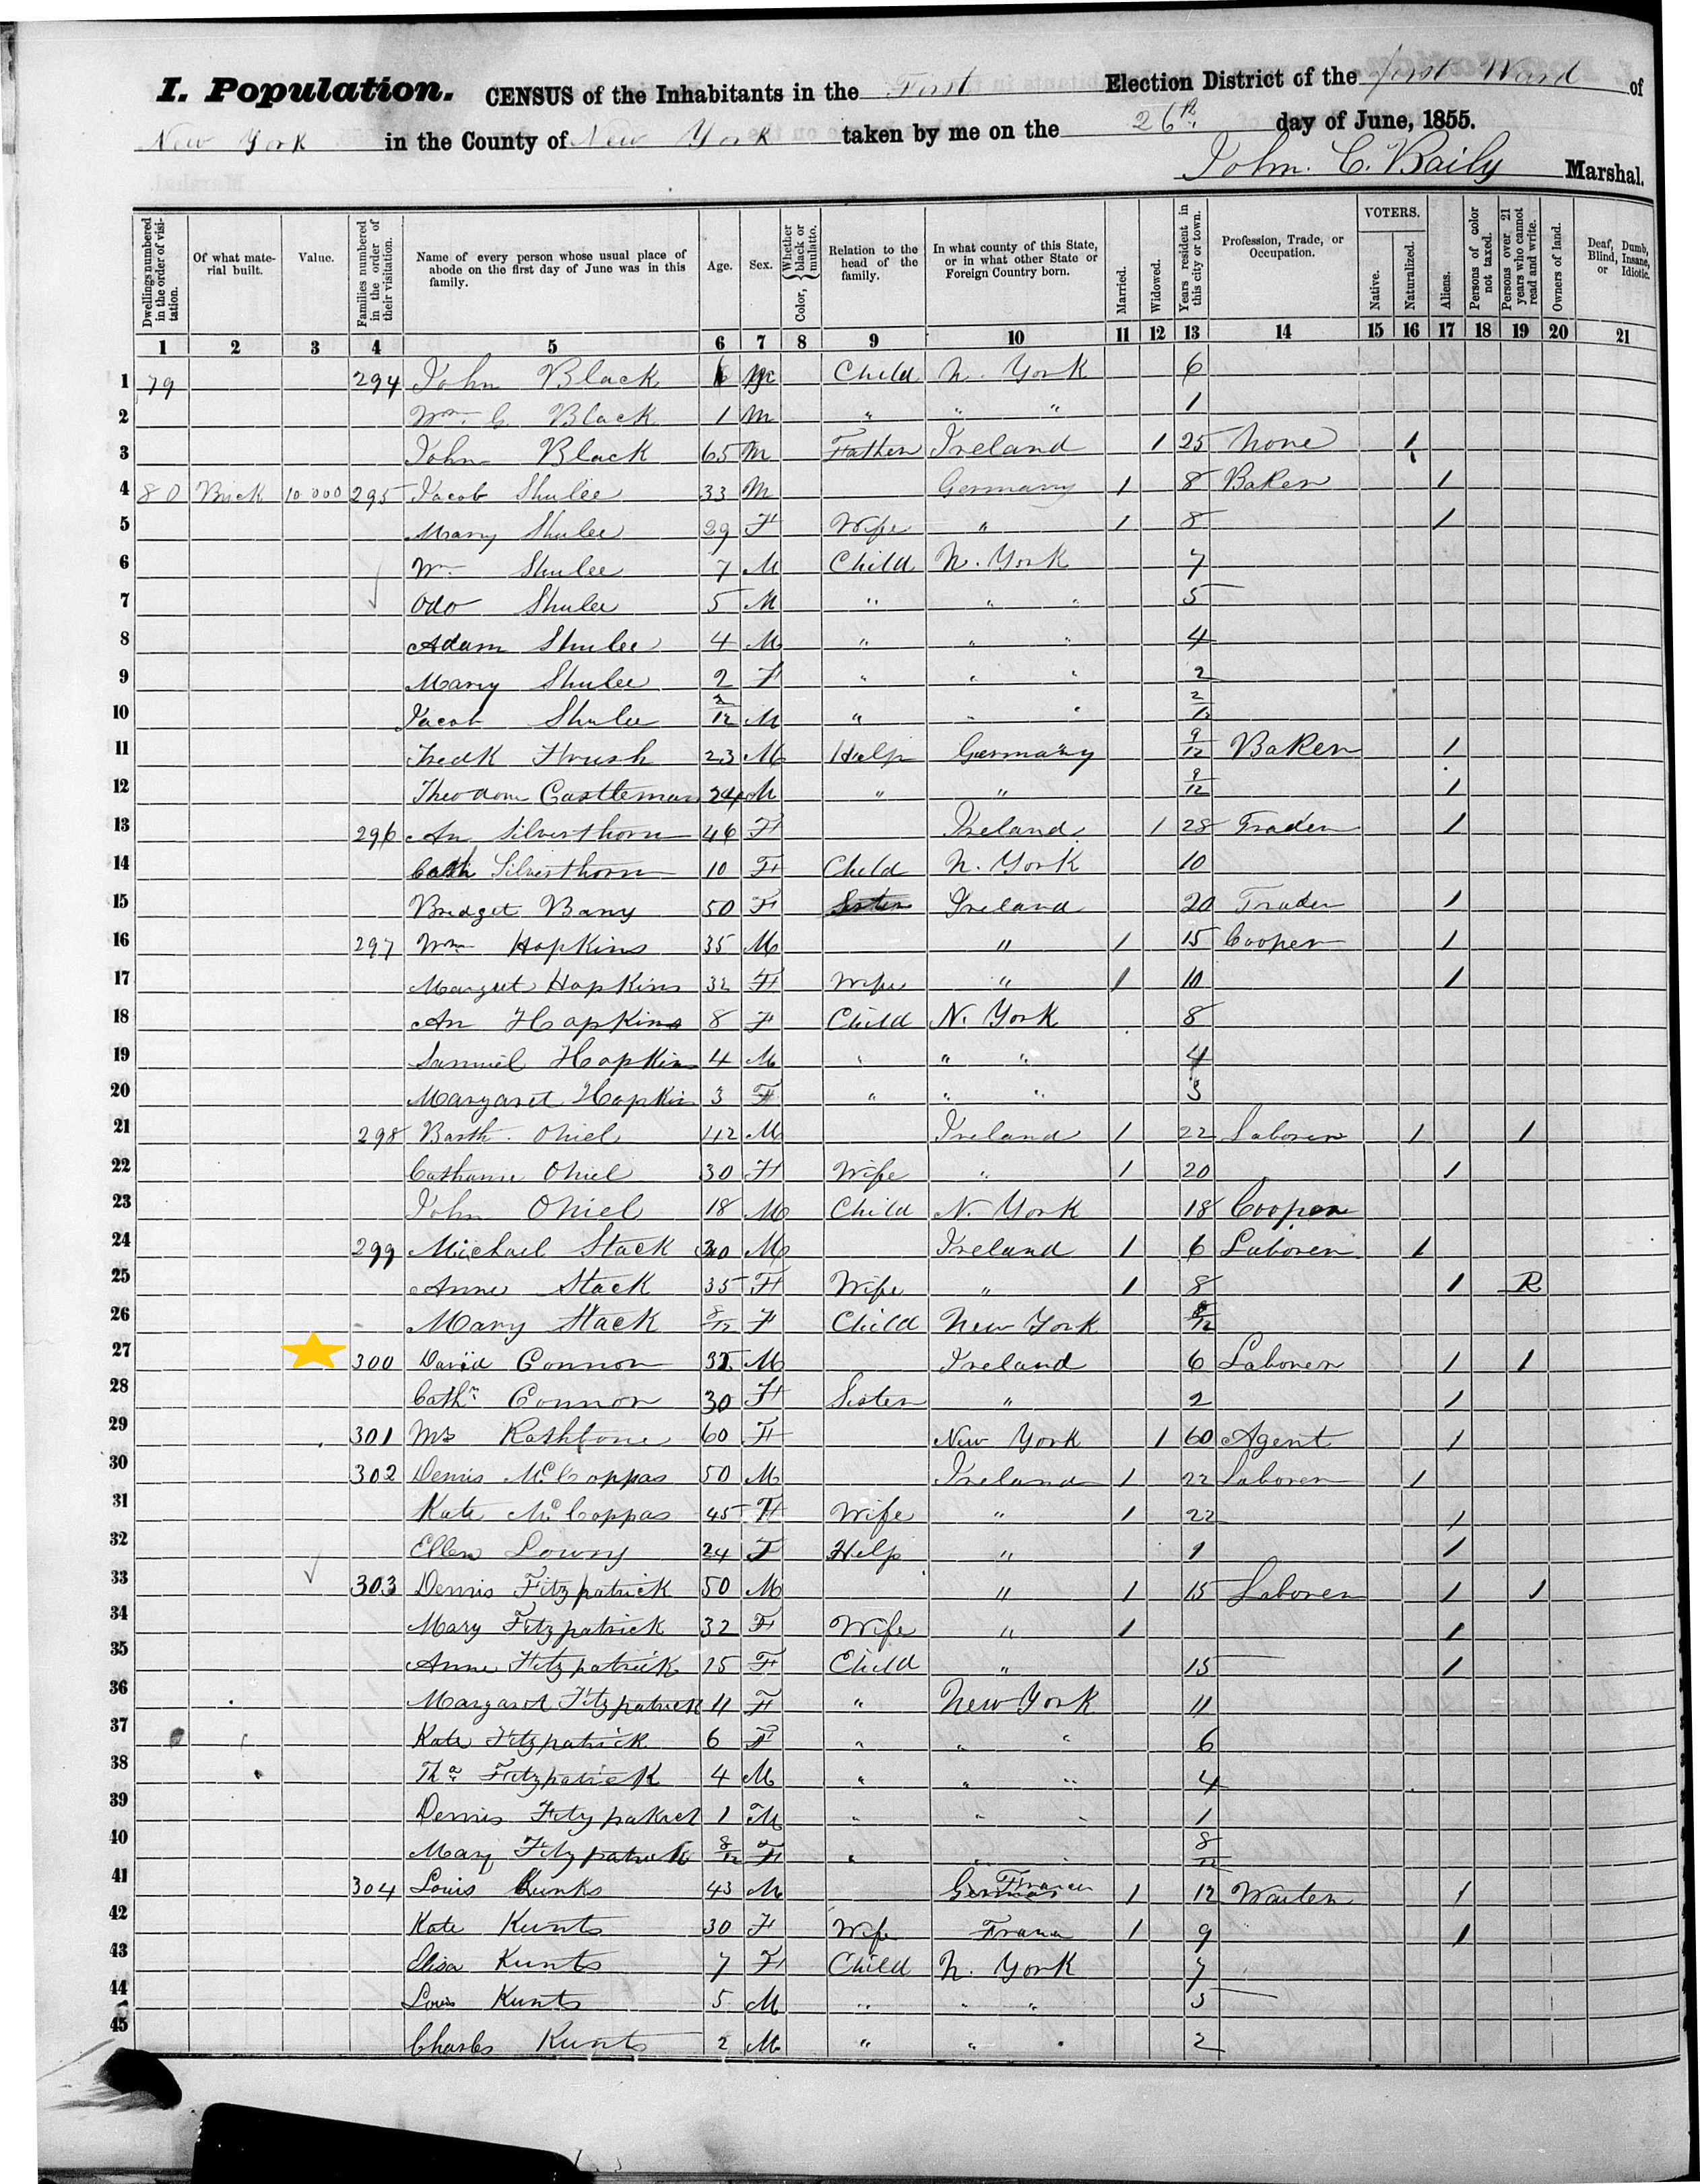 I. Population. CENSUS of the Inhabitants in the First Election District of the first Ward of
New York in the County of New York taken by me on the 26th day of June, 1855.
John. C. Baily Marshal.
Dwellings numbered in the order of visitation. Of what material built. Value. Families numbered in the order of their visitation. Name of every person whose usual place of abode on the first day of June was in this family. Age. Sex. Color, { Whether black or mulatto. Relation to the head of the family. In what county of this State, or in what other State or Foreign Country born. Married. Widowed. Years resident in this city or town. Profession, Trade, or Occupation. VOTERS. Native. Naturalized. Aliens. Persons of color not taxed. Persons over 21 years who cannot read and write. Owners of land. Deaf, Dumb, Blind, Insane, or Idiotic.
1 2 3 4 5 6 7 8 9 10 11 12 13 14 15 16 17 18 19 20 21
1 79 294 John Black 6 M Child N. York 6
2 Wm G. Black 1 M " " " 1
3 John Black 65 M Father Ireland 1 25 None 1
4 80 Brick 10000 295 Jacob Shulee 33 M Germany 1 8 Baker 1
5 Mary Shulee 29 F Wife " 1 8 1
6 Wm Shulee 7 M Child N. York 7
7 Odo Shulee 5 M " " " 5
8 Adam Shulee 4 M " " " 4
9 Mary Shulee 2 F " " " 2
10 Jacob Shulee 2/12 M " " " 2/12
11 Fredk 23 M Help Germany 9/12 Baker 1
12 Theodore Castleman 24 M " " 9/12 1
13 296 An Silverthorn 46 F Ireland 1 28 Trader 1
14 Cath Silverthorn 10 F Child N. York 10
15 Bridget Bany 50 F Sister Ireland 20 Trader 1
16 297 Wm Hopkins 35 M " 1 15 Cooper 1
17 Margret Hopkins 32 F Wife " 1 10 1
18 An Hopkins 8 F Child N. York 8
19 Samuel Hopkins 4 M " " " 4
20 Margaret Hopkin 3 F " " " 3
21 298 Barth. Oniel 42 M Ireland 1 22 Laborer 1 1
22 Catharine Oniel 30 F Wife " 1 20 1
23 John Oniel 18 M Child N. York 18 Cooper
24 299 Michael Stack 30 M Ireland 1 6 Laborer 1
25 Anne Stack 35 F Wife " 1 8 1 R
26 Mary Stack 8/12 F Child New York 8/12
27 300 David Connor M Ireland 6 Laborer 1 1
28 Cathr Connor 30 F Sister " 2 1
29 301 Mrs Rathbone 60 F New York 1 60 Agent 1
30 302 Dennis McCoppas 50 M Ireland 1 22 Laborer 1
31 Kate McCoppas 45 F Wife " 1 22 1
32 Ellen Lowry 24 F Help " 1 1
33 303 Dennis Fitzpatrick 50 M " 1 15 Laborer 1 1
34 Mary Fitzpatrick 32 F Wife " 1 1
35 Anne Fitzpatrick 15 F Child " 15 1
36 Margaret Fitzpatrick 11 F " New York 11
37 Kate Fitzpatrick 6 F " " " 6
38 Thos Fitzpatrick 4 M " " " 4
39 Dennis Fitzpatrick 1 M " " " 1
40 Mary Fitzpatrick 8/12 F " " " 8/12
41 304 Louis Kunks 43 M France 1 12 Waiter 1
42 Kate Kunts 30 F Wife France 1 9 1
43 Elisa Kunts 7 F Child N. York 7
44 Louis Kunts 5 M " " " 5
45 Charles Kunts 2 M " " " 2